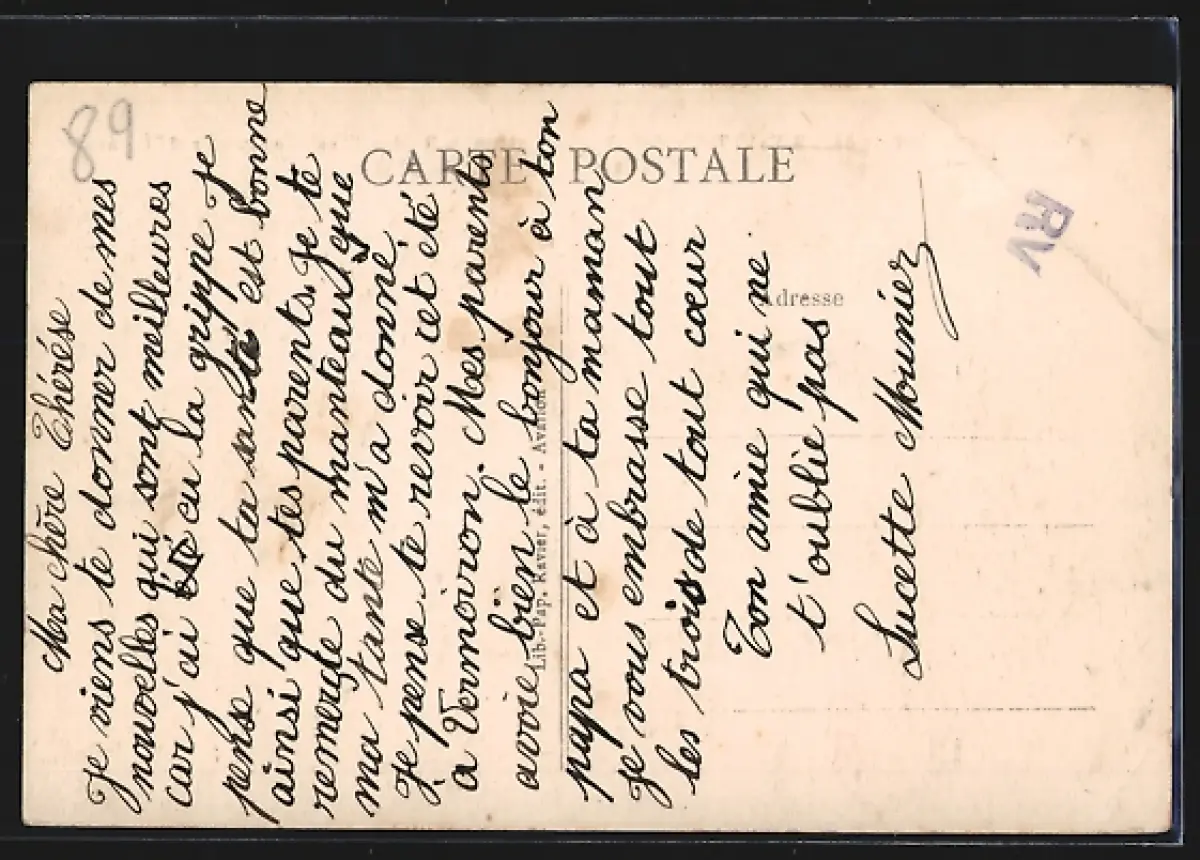 89
CARTE POSTALE
RV
Adresse
Lib.-Pap. Ravier, édit. - Avallon
Ma chère Thérèse
Je viens te donner de mes
nouvelles qui sont meilleures
car j'ai eu la grippe je
pense que ta santé est bonne
ainsi que tes parents. Je te
remercie du manteau que
ma tante m'a donné
Je pense te revoir cet été
a Vernoiron. Mes parents
avoie bien le bonjour à ton
papa et à ta maman
je vous embrasse tout
les trois de tout cœur
Ton amie qui ne
t'oublie pas
Lucette Mounier